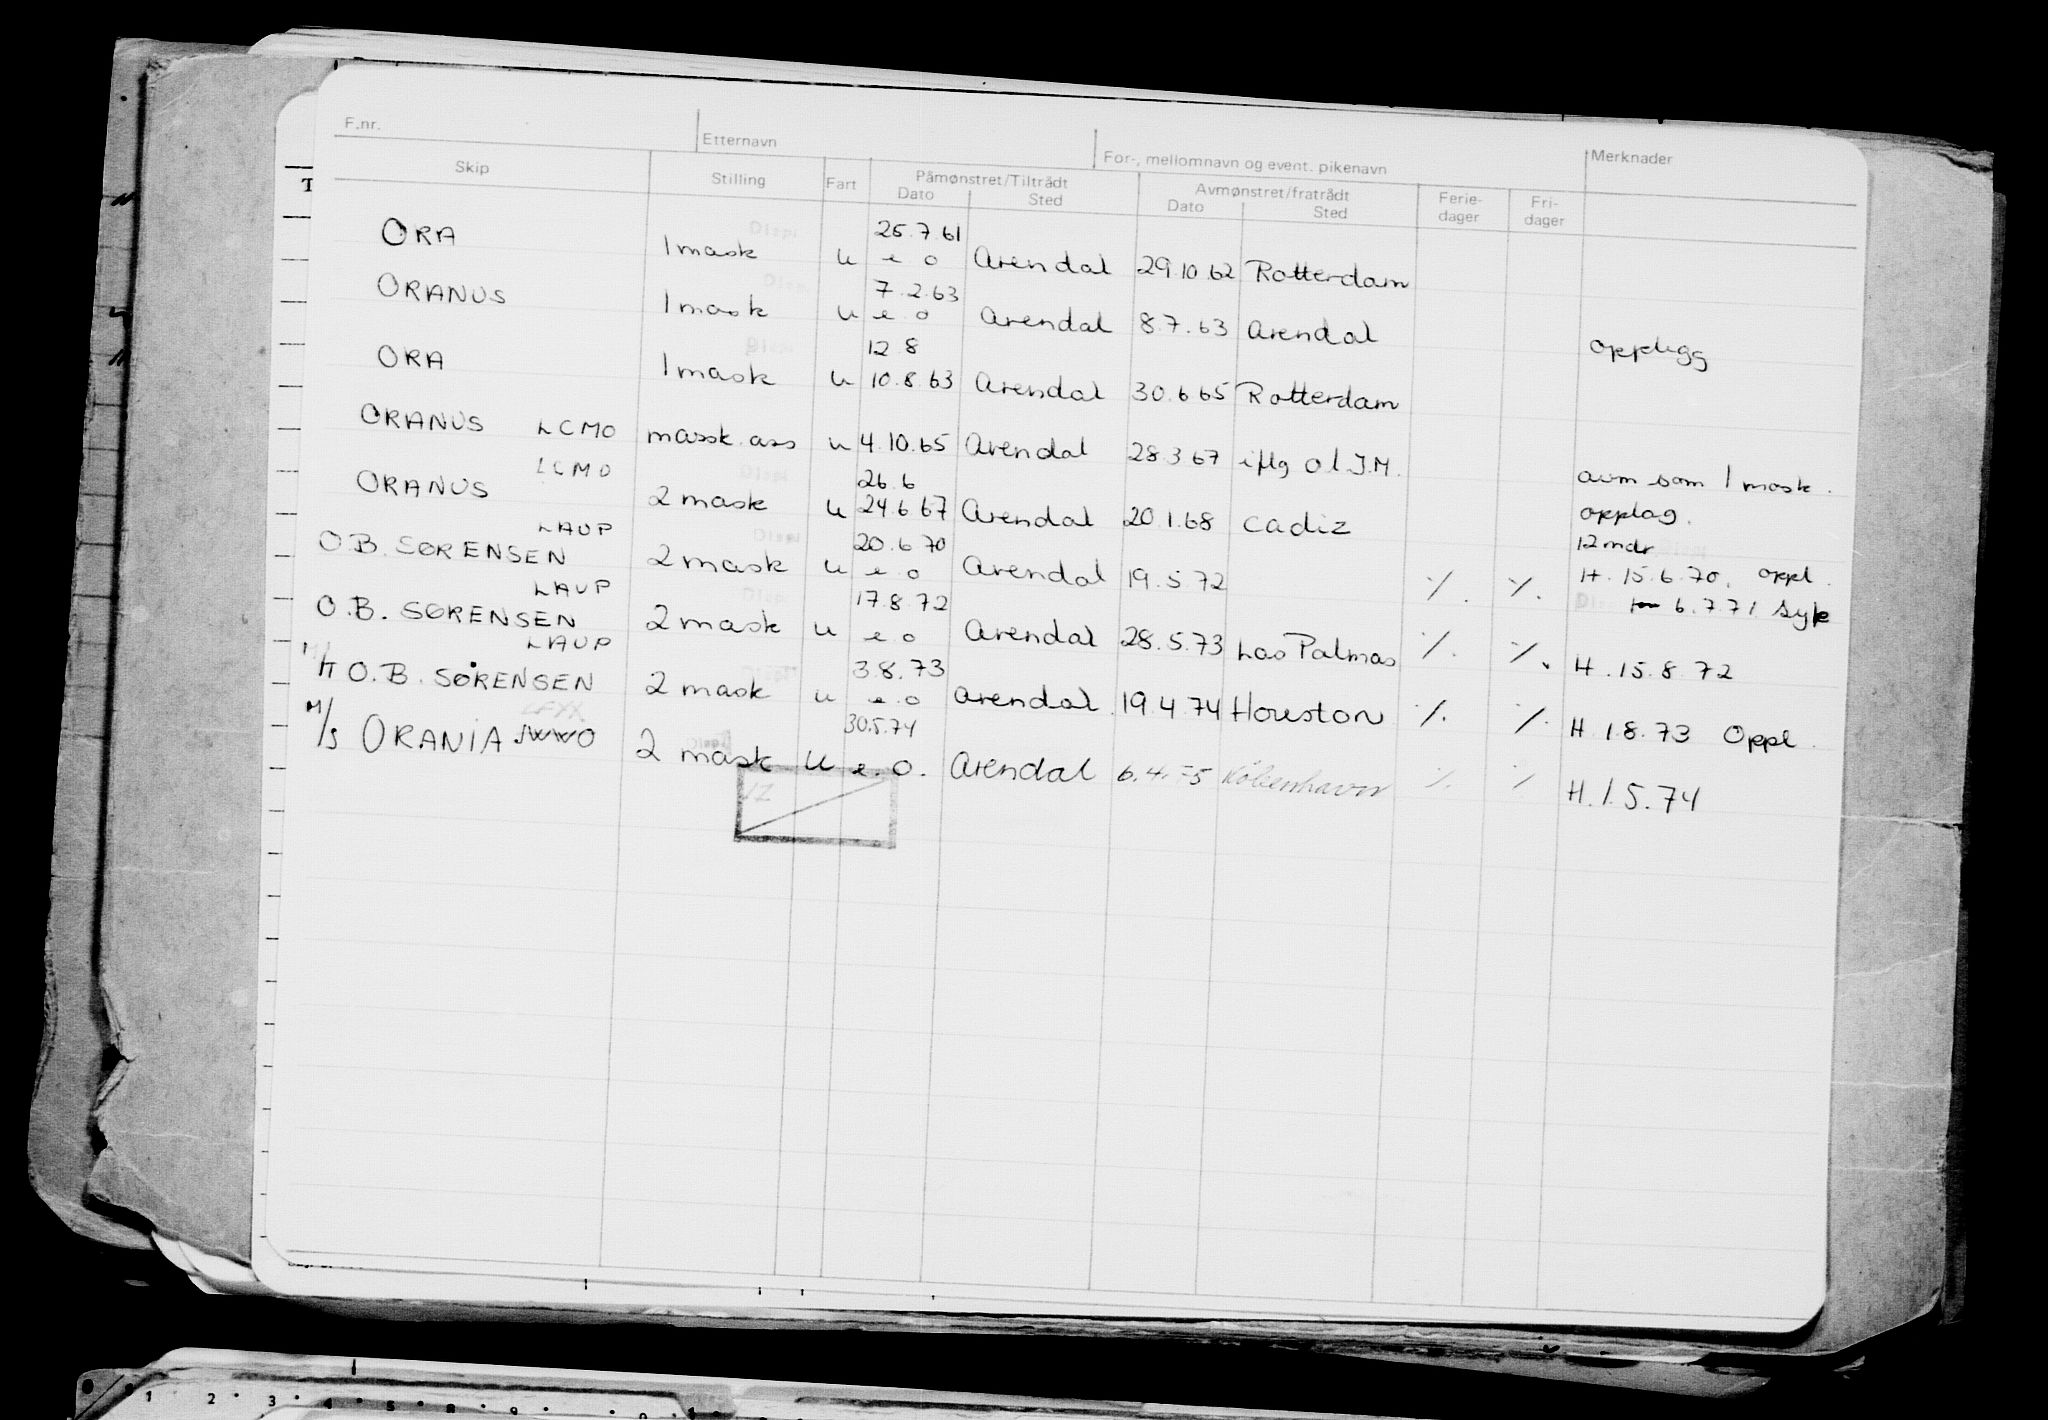 F.nr. Etternavn For-, mellomnavn og event. pikenavn Merknader
Skip Stilling Fart Påmønstret/Tiltrådt Avmønstret/fratrådt Ferie- Fri-
Dato Sted Dato Sted dager dager
25.7.61
ORA 1 mask u e o Arendal 29.10.62 Rotterdam
7.2.63
ORANUS 1 mask u e o Arendal 8.7.63 Arendal opplegg
12.8
ORA 1 mask u 10.8.63 Arendal 30.6 65 Rotterdam
ORANUS LCMO mask. ass u 4.10.65 Arendal 28.3 67 iflg o l J.M. avm som 1 mask.
LCMO 26.6
ORANUS 2 mask u 24.6 67 Arendal 20.1.68 Cadiz opplag.
LAUP 20.6 70 12 mdr
O.B. SØRENSEN 2 mask u e o Arendal 19.5.72 ./. ./. H. 15.6.70. oppl.
6.7.71 syk
LAUP 17.8.72
O.B. SØRENSEN 2 mask u e o Arendal 28.5.73 Las Palmas ./. ./. H. 15.8.72
LAUP 3.8.73
O.B. SØRENSEN 2 mask u e.o Arendal 19.4.74 Houston ./. ./. H 1.8.73 Oppl.
LFXX 30.5.74
M/S ORANIA 2 mask U e.o. Arendal 6.4.75 København ./. ./. H.1.5.74
1 2 3 4 5 8 9